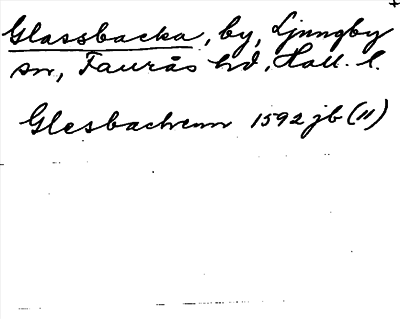 Glassbacka, by, Ljungby
sn, Faurås hd, Hall. l.
Glesbachenn 1592 jb (11)